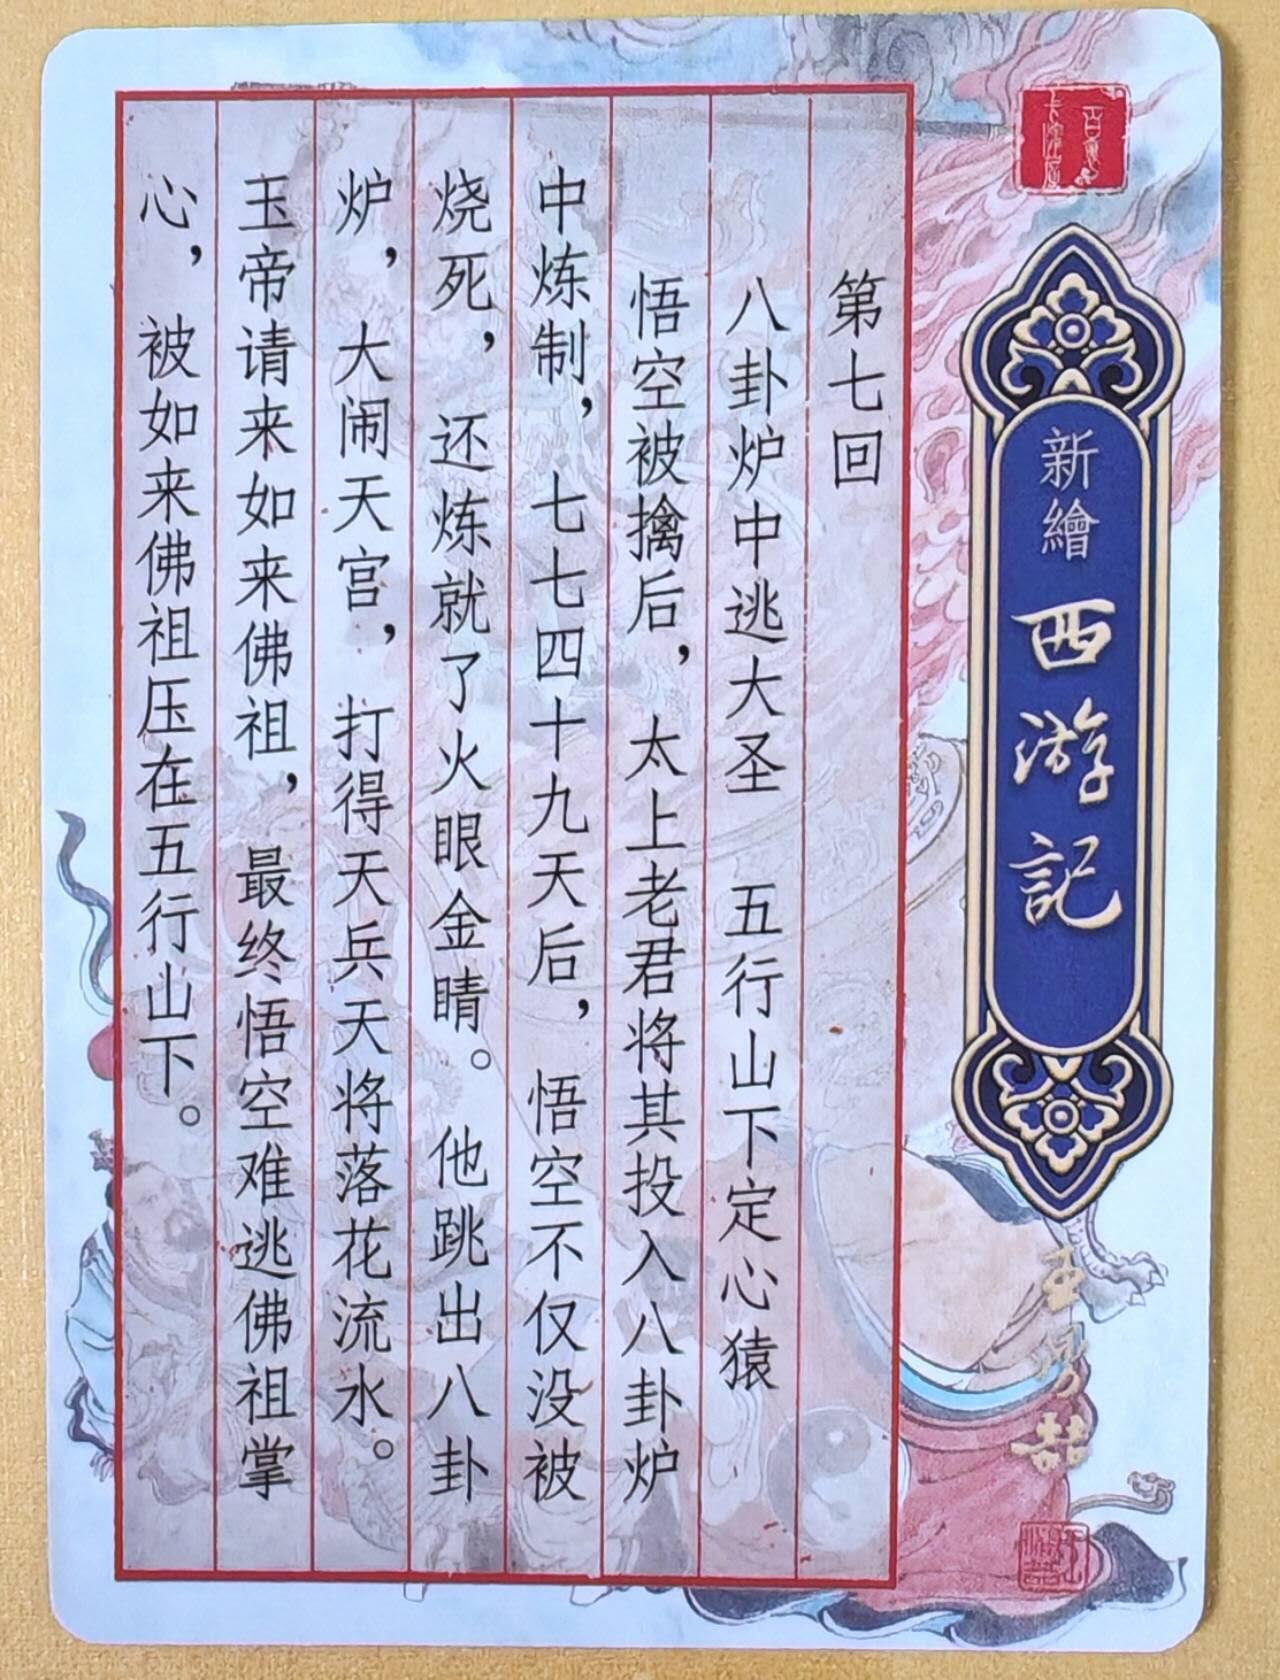 新繪
西游記
第七回
八卦炉中逃大圣 五行山下定心猿
悟空被擒后，太上老君将其投入八卦炉
中炼制，七七四十九天后，悟空不仅没被
烧死，还炼就了火眼金睛。他跳出八卦
炉，大闹天宫，打得天兵天将落花流水。
玉帝请来如来佛祖，最终悟空难逃佛祖掌
心，被如来佛祖压在五行山下。